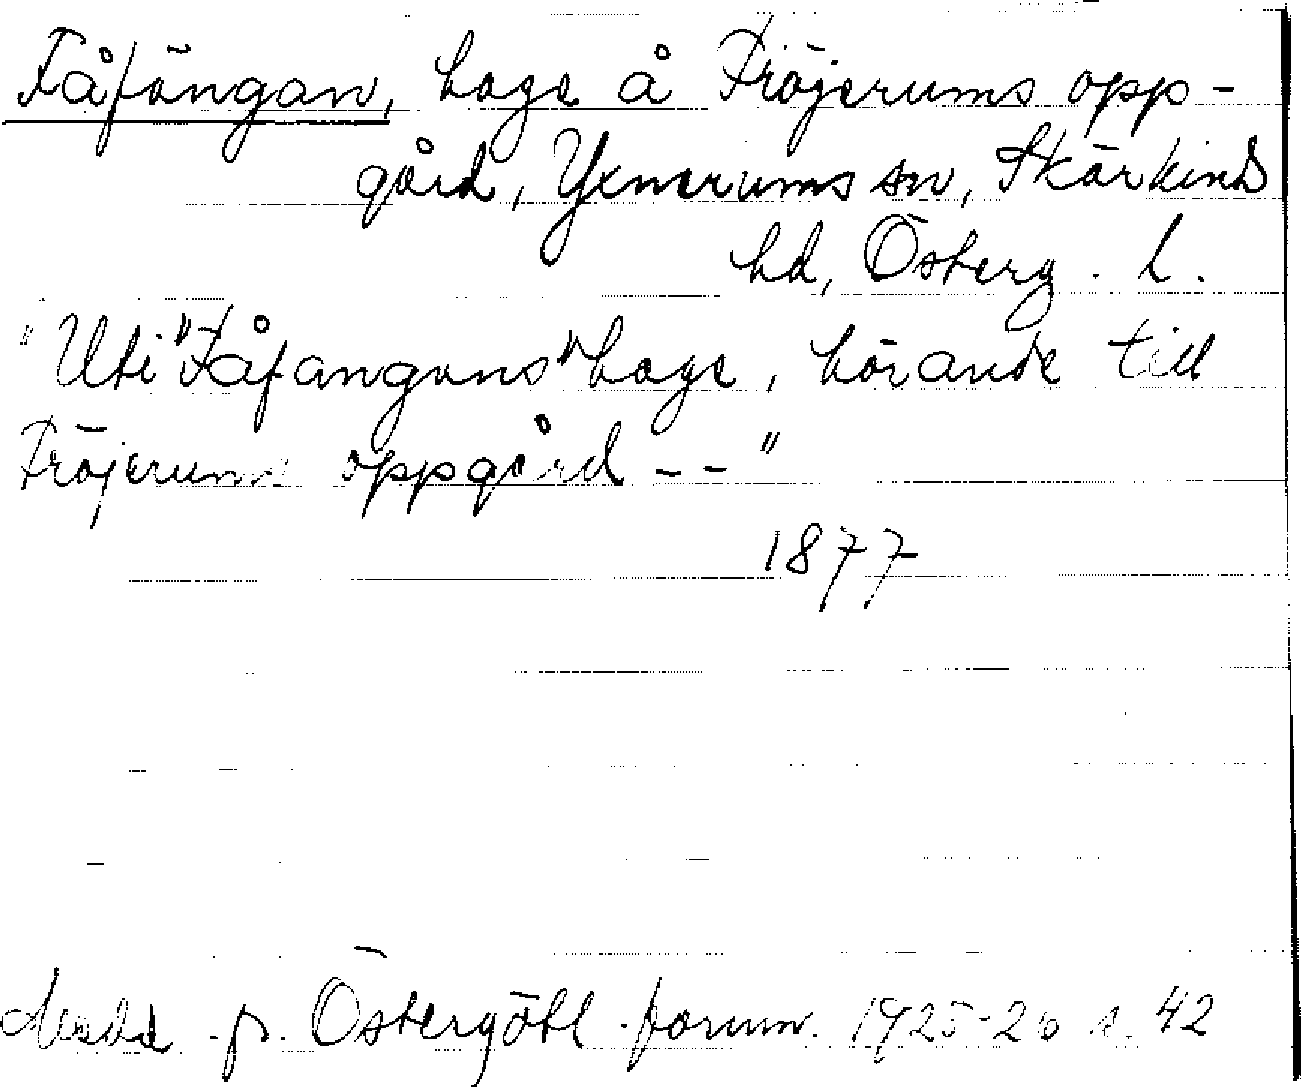 Fåfängan, hage å Fröjerums opp-
gård, Yxnerums sn, Skärkinds
hd, Österg. l.
"Uti "Fåfangans" hage, hörande till
Fröjerums oppgård -- "
1877
Medd. fr. Östergötl. fornm. 1925-26 s. 42